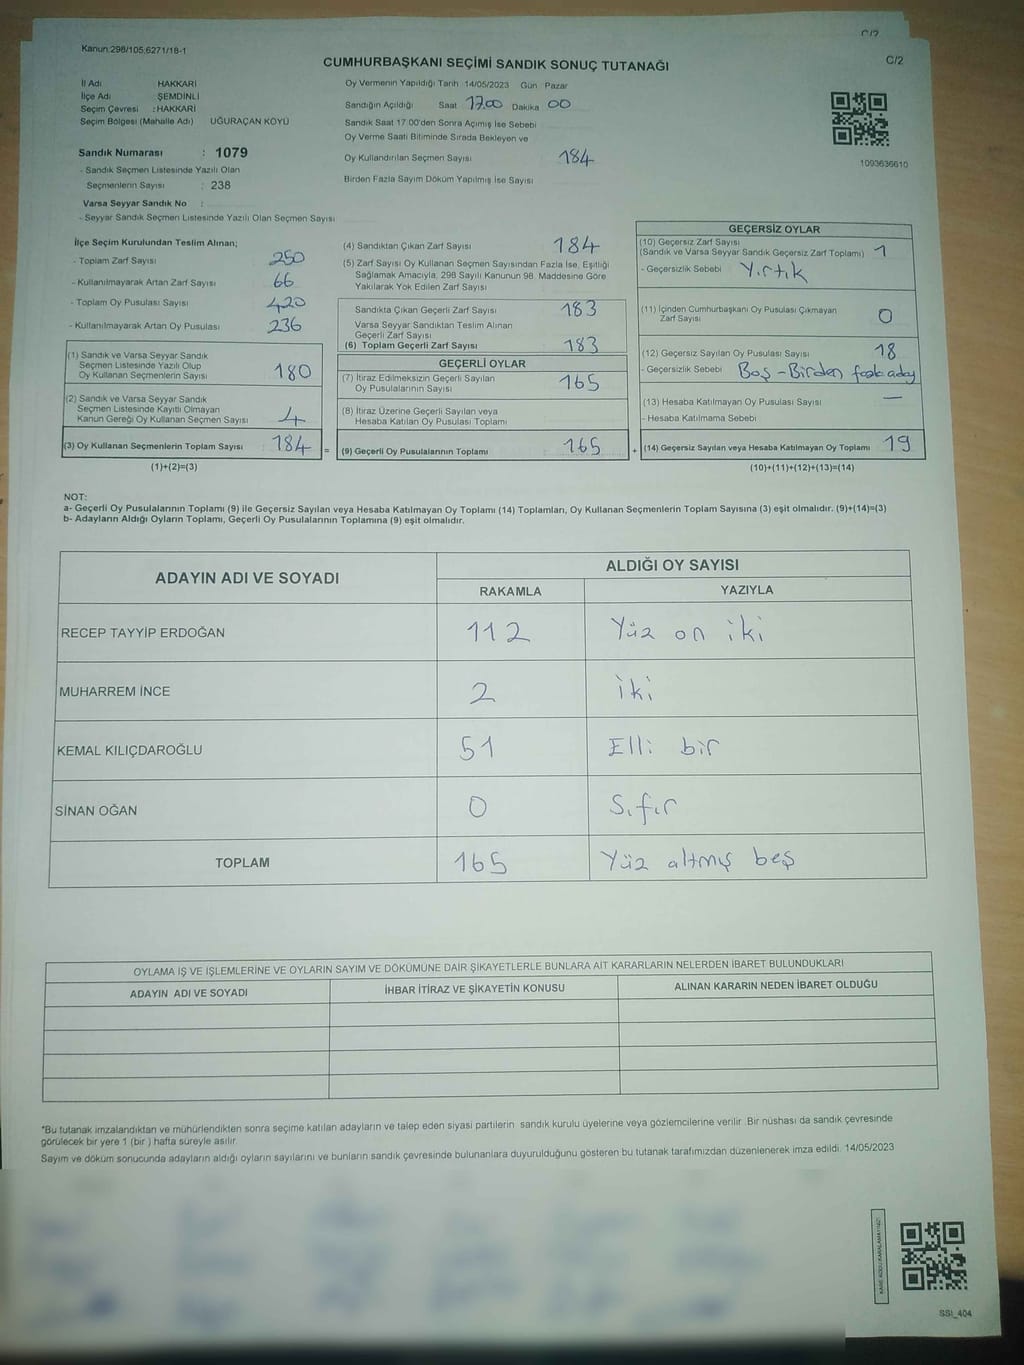 C/2
Kanun:298/105;6271/18-1
C/2
CUMHURBAŞKANI SEÇİMİ SANDIK SONUÇ TUTANAĞI
İl Adı HAKKARİ
İlçe Adı ŞEMDİNLİ
Seçim Çevresi : HAKKARİ
Seçim Bölgesi (Mahalle Adı) UĞURAÇAN KÖYÜ
Sandık Numarası : 1079
- Sandık Seçmen Listesinde Yazılı Olan
Seçmenlerin Sayısı : 238
Varsa Seyyar Sandık No :
- Seyyar Sandık Seçmen Listesinde Yazılı Olan Seçmen Sayısı
Oy Vermenin Yapıldığı Tarih 14/05/2023 Gün Pazar
Sandığın Açıldığı Saat 17.00 Dakika 00
Sandık Saat 17.00'den Sonra Açımış İse Sebebi
Oy Verme Saati Bitiminde Sırada Bekleyen ve
Oy Kullandırılan Seçmen Sayısı 184
Birden Fazla Sayım Döküm Yapılmış İse Sayısı
1093636610
İlçe Seçim Kurulundan Teslim Alınan;
- Toplam Zarf Sayısı 250
- Kullanılmayarak Artan Zarf Sayısı 66
- Toplam Oy Pusulası Sayısı 420
- Kullanılmayarak Artan Oy Pusulası 236
(1) Sandık ve Varsa Seyyar Sandık
Seçmen Listesinde Yazılı Olup
Oy Kullanan Seçmenlerin Sayısı 180
(2) Sandık ve Varsa Seyyar Sandık
Seçmen Listesinde Kayıtlı Olmayan
Kanun Gereği Oy Kullanan Seçmen Sayısı 4
(3) Oy Kullanan Seçmenlerin Toplam Sayısı 184
(1)+(2)=(3)
(4) Sandıktan Çıkan Zarf Sayısı 184
(5) Zarf Sayısı Oy Kullanan Seçmen Sayısından Fazla İse, Eşitliği
Sağlamak Amacıyla, 298 Sayılı Kanunun 98. Maddesine Göre
Yakılarak Yok Edilen Zarf Sayısı
Sandıkta Çıkan Geçerli Zarf Sayısı 183
Varsa Seyyar Sandıktan Teslim Alınan
Geçerli Zarf Sayısı
(6) Toplam Geçerli Zarf Sayısı 183
GEÇERLİ OYLAR
(7) İtiraz Edilmeksizin Geçerli Sayılan
Oy Pusulalarının Sayısı 165
(8) İtiraz Üzerine Geçerli Sayılan veya
Hesaba Katılan Oy Pusulası Toplamı
= (9) Geçerli Oy Pusulalarının Toplamı 165
GEÇERSİZ OYLAR
(10) Geçersiz Zarf Sayısı
(Sandık ve Varsa Seyyar Sandık Geçersiz Zarf Toplamı) 1
- Geçersizlik Sebebi Yırtık
(11) İçinden Cumhurbaşkanı Oy Pusulası Çıkmayan
Zarf Sayısı 0
(12) Geçersiz Sayılan Oy Pusulası Sayısı 18
- Geçersizlik Sebebi Boş - Birden fazla aday
(13) Hesaba Katılmayan Oy Pusulası Sayısı —
- Hesaba Katılmama Sebebi
+ (14) Geçersiz Sayılan veya Hesaba Katılmayan Oy Toplamı 19
(10)+(11)+(12)+(13)=(14)
NOT:
a- Geçerli Oy Pusulalarının Toplamı (9) ile Geçersiz Sayılan veya Hesaba Katılmayan Oy Toplamı (14) Toplamları, Oy Kullanan Seçmenlerin Toplam Sayısına (3) eşit olmalıdır. (9)+(14)=(3)
b- Adayların Aldığı Oyların Toplamı, Geçerli Oy Pusulalarının Toplamına (9) eşit olmalıdır.
ADAYIN ADI VE SOYADI
ALDIĞI OY SAYISI
RAKAMLA YAZIYLA
RECEP TAYYİP ERDOĞAN 112 Yüz on iki
MUHARREM İNCE 2 iki
KEMAL KILIÇDAROĞLU 51 Elli bir
SİNAN OĞAN 0 Sıfır
TOPLAM 165 Yüz altmış beş
OYLAMA İŞ VE İŞLEMLERİNE VE OYLARIN SAYIM VE DÖKÜMÜNE DAİR ŞİKAYETLERLE BUNLARA AİT KARARLARIN NELERDEN İBARET BULUNDUKLARI
ADAYIN ADI VE SOYADI İHBAR İTİRAZ VE ŞİKAYETİN KONUSU ALINAN KARARIN NEDEN İBARET OLDUĞU
*Bu tutanak imzalandıktan ve mühürlendikten sonra seçime katılan adayların ve talep eden siyasi partilerin sandık kurulu üyelerine veya gözlemcilerine verilir. Bir nüshası da sandık çevresinde
görülecek bir yere 1 (bir ) hafta süreyle asılır.
Sayım ve döküm sonucunda adayların aldığı oyların sayılarını ve bunların sandık çevresinde bulunanlara duyurulduğunu gösteren bu tutanak tarafımızdan düzenlenerek imza edildi. 14/05/2023
SSI_404